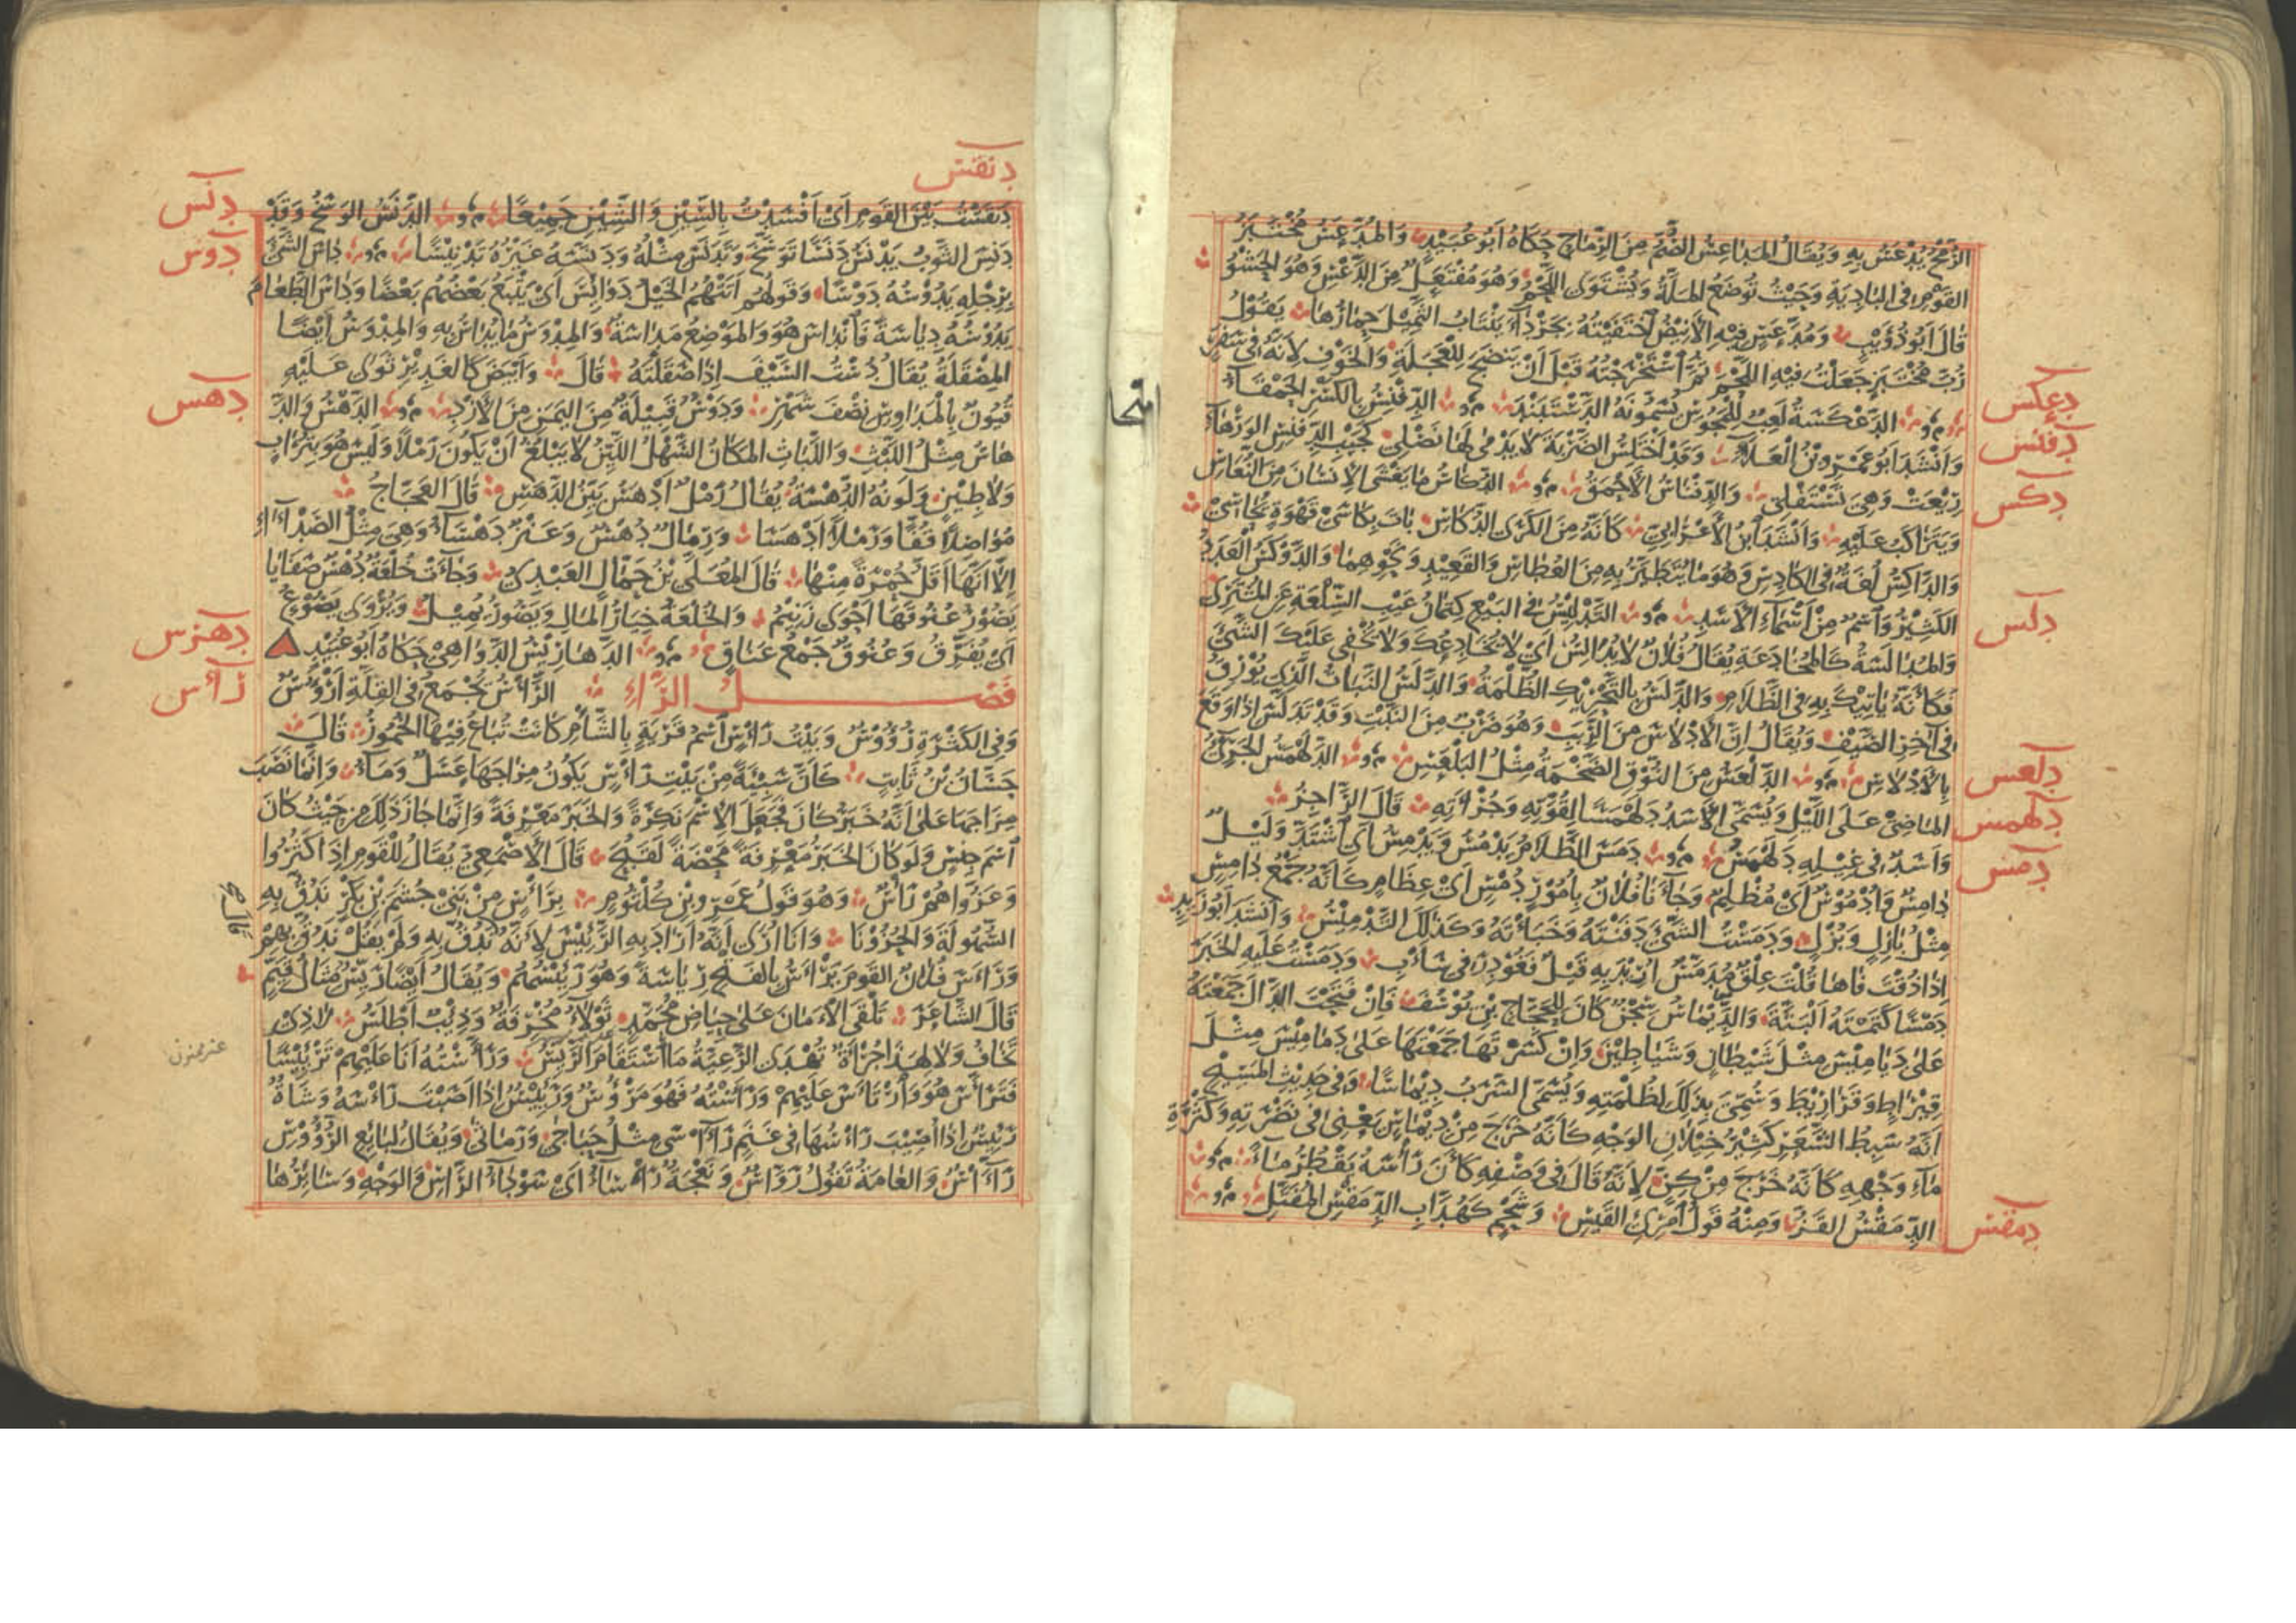 الرُّمْحُ يُدْعَسُ بِهِ وَيُقَالُ المَدَاعِسُ الصُّمُّ مِنَ الرِّمَاحِ حَكَاهُ أَبُو عُبَيْدٍ وَالمُدَّعَسُ مُخْتَبَزُ
القَوْمِ فِي البَادِيَةِ وَحَيْثُ تُوضَعُ المَلَّةُ وَيُشْتَوَى اللَّحْمُ وَهُوَ مُفْتَعَلٌ مِنَ الدَّعْسِ وَهُوَ الحَشْوُ
قَالَ أَبُو ذُؤَيْبٍ وَمُدَّعَسٍ فِيهِ الأَنِيضُ اخْتَفَيْتُهُ بِجَرْدَاءَ يَنْتَابُ الثَّمِيلَ حِمَارُهَا يَقُولُ
رُبَّ مُخْتَبَزٍ جَعَلْتُ فِيهِ اللَّحْمَ ثُمَّ اسْتَخْرَجْتُهُ قَبْلَ أَنْ يَنْضَجَ لِلْعَجَلَةِ وَالخَوْفِ لِأَنَّهُ فِي سَفَرٍ
دعكس
الدَّعْكَسَةُ لَعِبٌ لِلْمَجُوسِ يُسَمُّونَهُ الدَّسْتَبَنْدَ الدِّفْنِسُ بِالكَسْرِ الحَمْقَاءُ
دفنس
وَأَنْشَدَ أَبُو عَمْرِو بْنُ العَلَاءِ وَقَدْ أَخْتَلِسُ الضَّرْبَةَ لَا يَدْمَى لَهَا نَصْلِي كَجَيْبِ الدِّفْنِسِ الوَرْهَاءِ
رِيعَتْ وَهِيَ تَسْتَفْلِي وَالدِّفْنَاسُ الأَحْمَقُ الدُّكَاسُ مَا يَغْشَى الإِنْسَانَ مِنَ النُّعَاسِ
دكس
وَيَتَرَاكَبُ عَلَيْهِ وَأَنْشَدَ ابْنُ الأَعْرَابِيِّ كَأَنَّهُ مِنَ الكَرَى الدُّكَاسِ بَاتَ بِكَاسَيْ قَهْوَةٍ يُحَاسِي
وَالدَّاكِسُ لُغَةٌ فِي الكَادِسِ وَهُوَ مَا يُتَطَيَّرُ بِهِ مِنَ العُطَاسِ وَالقَعِيدِ وَنَحْوِهِمَا وَالدَّوْكَسُ العَدَدُ
الكَثِيرُ وَاسْمٌ مِنْ أَسْمَاءِ الأَسَدِ التَّدْلِيسُ فِي البَيْعِ كِتْمَانُ عَيْبِ السِّلْعَةِ عَنِ المُشْتَرِي
دلس
وَالمُدَالَسَةُ كَالمُخَادَعَةِ يُقَالُ فُلَانٌ لَا يُدَالِسُ أَيْ لَا يُخَادِعُكَ وَلَا يُخْفِي عَلَيْكَ الشَّيْءَ
فَكَأَنَّهُ يَأْتِيكَ بِهِ فِي الظَّلَامِ وَالدَّلَسُ بِالتَّحْرِيكِ الظُّلْمَةُ وَالدَّلَسُ النَّبَاتُ الَّذِي يُورِقُ
فِي آخِرِ الصَّيْفِ وَيُقَالُ إِنَّ الأَدْلَاسَ مِنَ الرَّبَبِ وَهُوَ ضَرْبٌ مِنَ النَّبْتِ وَقَدْ تَدَلَّسَ إِذَا وَقَعَ
بِالأَدْلَاسِ الدَّلْعَسُ مِنَ النُّوقِ الضَّخْمَةُ مِثْلُ البَلْعَسِ الدَّلَهْمَسُ الجَرِيءُ
دلعس
المَاضِي عَلَى اللَّيْلِ وَيُسَمَّى الأَسَدُ دَلَهْمَسًا لِقُوَّتِهِ وَجُرْأَتِهِ قَالَ الرَّاجِزُ
دلهمس
وَأَسَدٌ فِي غِيلِهِ دَلَهْمَسُ دَمَسَ الظَّلَامُ يَدْمُسُ وَيَدْمِسُ أَيِ اشْتَدَّ وَلَيْلٌ
دمس
دَامِسٌ وَأُدْمُوسٌ أَيْ مُظْلِمٌ وَجَاءَنَا فُلَانٌ بِأُمُورٍ دُمْسٍ أَيْ عِظَامٍ كَأَنَّهُ جَمْعُ دَامِسٍ
مِثْلُ بَازِلٍ وَبُزْلٍ وَدَمَسْتُ الشَّيْءَ دَفَنْتُهُ وَخَبَأْتُهُ وَكَذَلِكَ التَّدْمِيسُ وَأَنْشَدَ أَبُو زَيْدٍ
إِذَا ذُقْتَ فَاهَا قُلْتَ عِلْقٌ مُدَمَّسٌ أُرِيدَ بِهِ قَيْلٌ فَغُودِرَ فِي سَأْبِ وَدَمَسْتُ عَلَيْهِ الخَبَرَ
دَمْسًا كَتَمْتُهُ البَتَّةَ وَالدِّيمَاسُ سِجْنٌ كَانَ لِلْحَجَّاجِ بْنِ يُوسُفَ فَإِنْ فَتَحْتَ الدَّالَ جَمَعْتَهُ
عَلَى دَيَامِيسَ مِثْلَ شَيْطَانٍ وَشَيَاطِينَ وَإِنْ كَسَرْتَهَا جَمَعْتَهَا عَلَى دَمَامِيسَ مِثْلَ
قِيرَاطٍ وَقَرَارِيطَ وَسُمِّيَ بِذَلِكَ لِظُلْمَتِهِ وَيُسَمَّى السَّرَبُ دِيمَاسًا وَفِي حَدِيثِ المَسِيحِ
أَنَّهُ سَبِطُ الشَّعَرِ كَثِيرُ خِيلَانِ الوَجْهِ كَأَنَّهُ خَرَجَ مِنْ دِيمَاسٍ يَعْنِي فِي نَضْرَتِهِ وَكَثْرَةِ
مَاءِ وَجْهِهِ كَأَنَّهُ خَرَجَ مِنْ كِنٍّ لِأَنَّهُ قَالَ فِي وَصْفِهِ كَأَنَّ رَأْسَهُ يَقْطُرُ مَاءً
الدِّمَقْسُ القَزُّ وَمِنْهُ قَوْلُ امْرِئِ القَيْسِ وَشَحْمٍ كَهُدَّابِ الدِّمَقْسِ المُفَتَّلِ
دمقس
دنقس
دَنْقَسْتُ بَيْنَ القَوْمِ أَيْ أَفْسَدْتُ بِالسِّينِ وَالشِّينِ جَمِيعًا الدَّنَسُ الوَسَخُ وَقَدْ
دنس
دَنِسَ الثَّوْبُ يَدْنَسُ دَنَسًا تَوَسَّخَ وَتَدَنَّسَ مِثْلُهُ وَدَنَّسَهُ غَيْرُهُ تَدْنِيسًا دَاسَ الشَّيْءَ
دوس
بِرِجْلِهِ يَدُوسُهُ دَوْسًا وَقَوْلُهُمْ أَتَتْهُمُ الخَيْلُ دَوَائِسَ أَيْ يَتْبَعُ بَعْضُهُمْ بَعْضًا وَدَاسَ الطَّعَامَ
يَدُوسُهُ دِيَاسَةً فَانْدَاسَ هُوَ وَالمَوْضِعُ مَدَاسَةٌ وَالمِدْوَسُ مَا يُدَاسُ بِهِ وَالمِدْوَسُ أَيْضًا
المِصْقَلَةُ يُقَالُ دُسْتُ السَّيْفَ إِذَا صَقَلْتَهُ قَالَ وَأَبْيَضَ كَالغَدِيرِ ثَوَى عَلَيْهِ
قُيُونٌ بِالمَدَاوِسِ نِصْفَ شَهْرِ وَدَوْسٌ قَبِيلَةٌ مِنَ اليَمَنِ مِنَ الأَزْدِ الدَّهْسُ وَالدَّ
دهس
هَاسُ مِثْلُ اللَّبْثِ وَاللَّبَاثِ المَكَانُ السَّهْلُ اللَّيِّنُ لَا يَبْلُغُ أَنْ يَكُونَ رَمْلًا وَلَيْسَ هُوَ بِتُرَابٍ
وَلَا طِينٍ وَلَوْنُهُ الدُّهْسَةُ يُقَالُ رَمْلٌ أَدْهَسُ بَيِّنُ الدَّهَسِ قَالَ العَجَّاجُ
مُوَاصِلًا قُفًّا وَرَمْلًا أَدْهَسَا وَرِمَالٌ دُهْسٌ وَعَنْزٌ دَهْسَاءُ وَهِيَ مِثْلُ الصَّدْآءِ
إِلَّا أَنَّهَا أَقَلُّ حُمْرَةً مِنْهَا قَالَ المُعَلَّى بْنُ جَمَّالٍ العَبْدِيُّ وَجَاءَتْ خُلْعَةٌ دُهْسٌ صَفَايَا
يَصُورُ عُنُوقَهَا أَحْوَى زَنِيمُ وَالخُلْعَةُ خِيَارُ المَالِ وَيَصُورُ يُمِيلُ وَيُرْوَى يَصُوعُ
أَيْ يُفَرِّقُ وَعُنُوقٌ جَمْعُ عَنَاقٍ الدَّهَارِيسُ الدَّوَاهِي حَكَاهُ أَبُو عُبَيْدٍ
دهرس
فَصْلُ الرَّاءِ الرَّأْسُ يُجْمَعُ فِي القِلَّةِ أَرْؤُسٌ
رأس
وَفِي الكَثْرَةِ رُؤُوسٌ وَبَيْتُ رَأْسٍ اسْمُ قَرْيَةٍ بِالشَّأْمِ كَانَتْ تُبَاعُ فِيهَا الخُمُورُ قَالَ
حَسَّانُ بْنُ ثَابِتٍ كَأَنَّ سَبِيئَةً مِنْ بَيْتِ رَأْسٍ يَكُونُ مِزَاجَهَا عَسَلٌ وَمَاءُ وَإِنَّمَا نَصَبَ
مِزَاجَهَا عَلَى أَنَّهُ خَبَرُ كَانَ فَجَعَلَ الِاسْمَ نَكِرَةً وَالخَبَرَ مَعْرِفَةً وَإِنَّمَا جَازَ ذَلِكَ مِنْ حَيْثُ كَانَ
اسْمَ جِنْسٍ وَلَوْ كَانَ الخَبَرُ مَعْرِفَةً مَحْضَةً لَقَبُحَ قَالَ الأَصْمَعِيُّ يُقَالُ لِلْقَوْمِ إِذَا كَثُرُوا
وَعَزُّوا هُمْ رَأْسٌ وَهُوَ قَوْلُ عَمْرِو بْنِ كُلْثُومٍ بِرَأْسٍ مِنْ بَنِي جُشَمَ بْنِ بَكْرٍ نَدُقُّ بِهِ
السُّهُولَةَ وَالحُزُونَا وَأَنَا أَرَى أَنَّهُ أَرَادَ بِهِ الرَّئِيسَ لِأَنَّهُ نَدُقُّ بِهِ وَلَمْ يَقُلْ نَدُقُّ بِهِمْ
وَرَأَسَ فُلَانٌ القَوْمَ يَرْأَسُ بِالفَتْحِ رِيَاسَةً وَهُوَ رَئِيسُهُمْ وَيُقَالُ أَيْضًا رَيِّسٌ مِثَالُ قَيِّمٍ
قَالَ الشَّاعِرُ تَلْقَى الأَمَانَ عَلَى حِيَاضِ مُحَمَّدٍ ثَوْلَاءُ مُخْرِفَةٌ وَذِئْبٌ أَطْلَسُ لَا ذِي
تَخَافُ وَلَا لِهَذَا جُرْأَةٌ تُهْدَى الرَّعِيَّةُ مَا اسْتَقَامَ الرَّيِّسُ وَرَأَّسْتُهُ أَنَا عَلَيْهِمْ تَرْئِيسًا
فَتَرَأَّسَ هُوَ وَارْتَأَسَ عَلَيْهِمْ وَرَأَسْتُهُ فَهُوَ مَرْؤُوسٌ وَرَئِيسٌ إِذَا أَصَبْتَ رَأْسَهُ وَشَاةٌ
رَئِيسٌ إِذَا أُصِيبَ رَأْسُهَا فِي غَنَمٍ رَآسَى مِثْلُ حَبَاجَى وَرَمَاثَى وَيُقَالُ لِبَائِعِ الرُّؤُوسِ
رَأَّاسٌ وَالعَامَّةُ تَقُولُ رَوَّاسٌ وَنَعْجَةٌ رَأْسَاءُ أَيْ سَوْدَاءُ الرَّأْسِ وَالوَجْهِ وَسَائِرُهَا